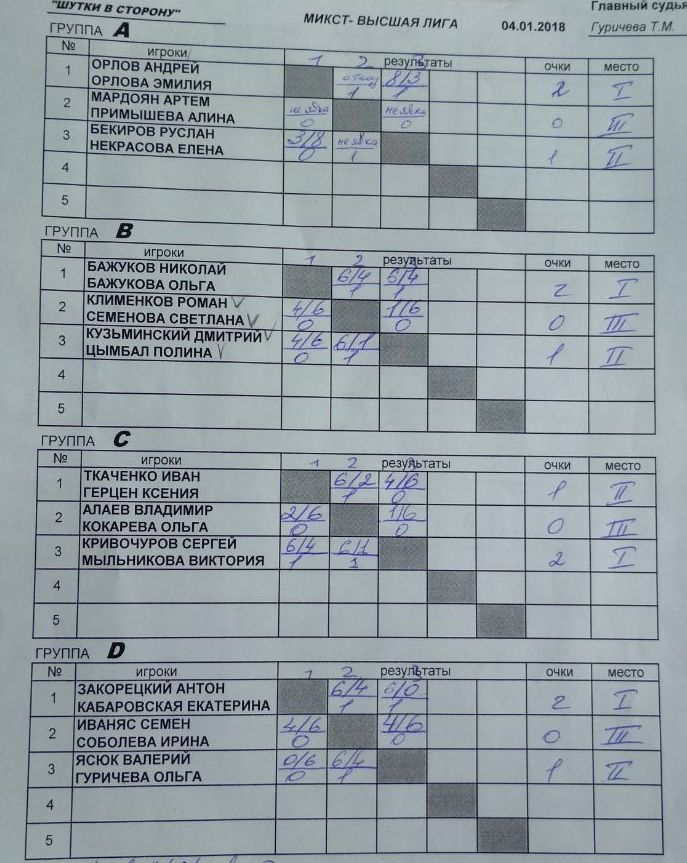 "ШУТКИ В СТОРОНУ"
МИКСТ- ВЫСШАЯ ЛИГА
04.01.2018
Главный судья
Гуричева Т.М.
ГРУППА A
№ игроки 1 2 3 результаты очки место
1 ОРЛОВ АНДРЕЙ
ОРЛОВА ЭМИЛИЯ отказ 1 8/3 1 2 I
2 МАРДОЯН АРТЕМ
ПРИМЫШЕВА АЛИНА неявка 0 неявка 0 0 III
3 БЕКИРОВ РУСЛАН
НЕКРАСОВА ЕЛЕНА 3/8 0 неявка 1 1 II
4
5
ГРУППА B
№ игроки 1 2 3 результаты очки место
1 БАЖУКОВ НИКОЛАЙ
БАЖУКОВА ОЛЬГА 6/4 1 6/4 1 2 I
2 КЛИМЕНКОВ РОМАН
СЕМЕНОВА СВЕТЛАНА 4/6 0 1/6 0 0 III
3 КУЗЬМИНСКИЙ ДМИТРИЙ
ЦЫМБАЛ ПОЛИНА 4/6 0 6/1 1 1 II
4
5
ГРУППА C
№ игроки 1 2 3 результаты очки место
1 ТКАЧЕНКО ИВАН
ГЕРЦЕН КСЕНИЯ 6/2 1 4/6 0 1 II
2 АЛАЕВ ВЛАДИМИР
КОКАРЕВА ОЛЬГА 2/6 0 1/6 0 0 III
3 КРИВОЧУРОВ СЕРГЕЙ
МЫЛЬНИКОВА ВИКТОРИЯ 6/4 1 6/1 1 2 I
4
5
ГРУППА D
№ игроки 1 2 3 результаты очки место
1 ЗАКОРЕЦКИЙ АНТОН
КАБАРОВСКАЯ ЕКАТЕРИНА 6/4 1 6/0 1 2 I
2 ИВАНЯС СЕМЕН
СОБОЛЕВА ИРИНА 4/6 0 4/6 0 0 III
3 ЯСЮК ВАЛЕРИЙ
ГУРИЧЕВА ОЛЬГА 0/6 0 6/4 1 1 II
4
5